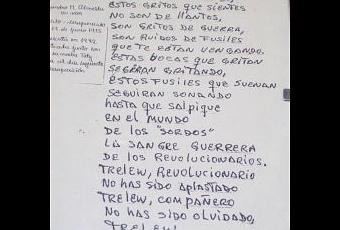 ESTOS GRITOS QUE SIENTES
NO SON DE LLANTOS,
SON GRITOS DE GUERRA,
SON RUIDOS DE FUSILES
QUE TE ESTAN VENGANDO.
ESTAS BOCAS QUE GRITAN
SEGUIRAN GRITANDO,
ESTOS FUSILES QUE SUENAN
SEGUIRAN SONANDO
HASTA QUE SALPIQUE
EN EL MUNDO
DE LOS "SORDOS"
LA SANGRE GUERRERA
DE LOS REVOLUCIONARIOS.
TRELEW, REVOLUCIONARIO
NO HAS SIDO APLASTADO
TRELEW, COMPAÑERO
NO HAS SIDO OLVIDADO,
TRELEW!